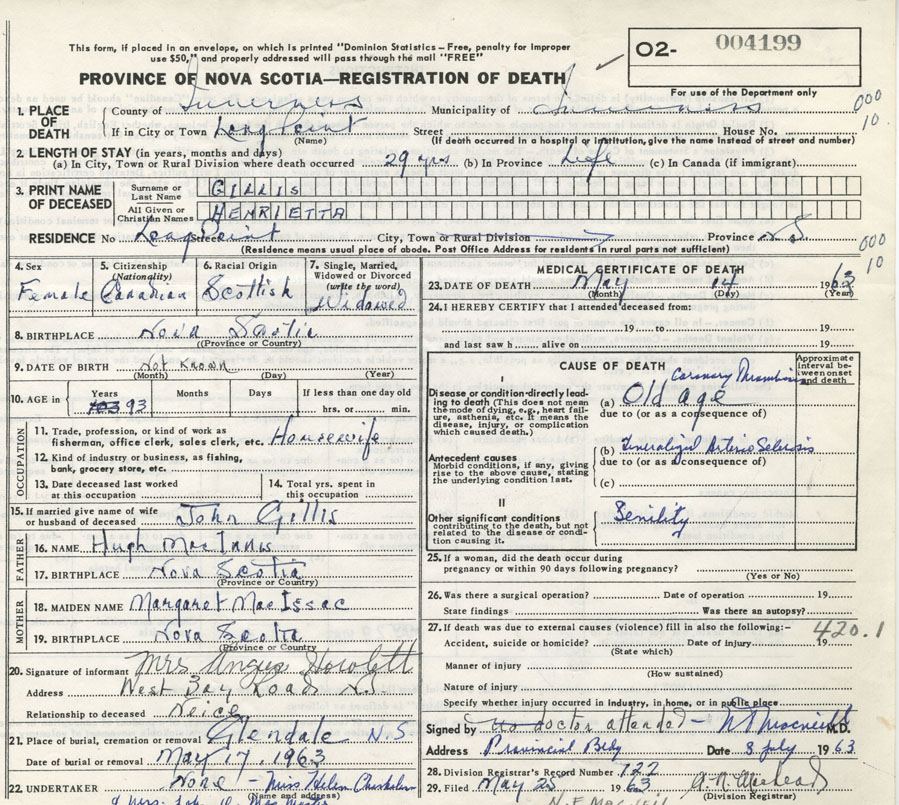 This form, if placed in an envelope, on which is printed "Dominion Statistics – Free, penalty for Improper
use $50," and properly addressed will pass through the mail "FREE"
O2- 004199
PROVINCE OF NOVA SCOTIA—REGISTRATION OF DEATH
For use of the Department only
1. PLACE OF DEATH
County of Inverness Municipality of Inverness
000
10
If in City or Town Long Point Street House No.
(Name) (If death occurred in a hospital or institution, give the name instead of street and number)
2. LENGTH OF STAY (in years, months and days)
(a) In City, Town or Rural Division where death occurred 29 yrs (b) In Province Life (c) In Canada (if immigrant)
3. PRINT NAME OF DECEASED
Surname or Last Name GILLIS
All Given or Christian Names HENRIETTA
RESIDENCE No Long Point Street City, Town or Rural Division Province N S
(Residence means usual place of abode. Post Office Address for residents in rural parts not sufficient)
000
10
4. Sex Female
5. Citizenship (Nationality) Canadian
6. Racial Origin Scottish
7. Single, Married, Widowed or Divorced (write the word) Widowed
8. BIRTHPLACE Nova Scotia
(Province or Country)
9. DATE OF BIRTH Not Known
(Month) (Day) (Year)
10. AGE in Years Months Days If less than one day old
103 93 hrs. or min.
OCCUPATION
11. Trade, profession, or kind of work as
fisherman, office clerk, sales clerk, etc. Housewife
12. Kind of industry or business, as fishing,
bank, grocery store, etc.
13. Date deceased last worked
at this occupation
14. Total yrs. spent in
this occupation
15. If married give name of wife
or husband of deceased John Gillis
FATHER
16. NAME Hugh MacInnis
17. BIRTHPLACE Nova Scotia
(Province or Country)
MOTHER
18. MAIDEN NAME Margaret MacIssac
19. BIRTHPLACE Nova Scotia
(Province or Country)
20. Signature of informant Mrs Angus Howlett
Address West Bay Road N.S
Relationship to deceased Neice
21. Place of burial, cremation or removal Glendale N.S
Date of burial or removal May 17, 1963
22. UNDERTAKER None – Miss Helen Chisholm
(Name and address)
MEDICAL CERTIFICATE OF DEATH
23. DATE OF DEATH May 14 1963
(Month) (Day) (Year)
24. I HEREBY CERTIFY that I attended deceased from:
19 to 19
and last saw h alive on 19
CAUSE OF DEATH
Approximate interval between onset and death
I
Disease or condition directly leading to death (This does not mean the mode of dying, e.g., heart failure, asthenia, etc. It means the disease, injury, or complication which caused death.)
Coronary Thrombosis
(a) Old age
due to (or as a consequence of)
Antecedent causes
Morbid conditions, if any, giving rise to the above cause, stating the underlying condition last.
(b) Generalized Arterio Sclerosis
due to (or as a consequence of)
(c)
II
Other significant conditions
contributing to the death, but not related to the disease or condition causing it.
Senility
25. If a woman, did the death occur during
pregnancy or within 90 days following pregnancy?
(Yes or No)
26. Was there a surgical operation? Date of operation 19
State findings Was there an autopsy?
27. If death was due to external causes (violence) fill in also the following:–
420.1
Accident, suicide or homicide? Date of injury 19
(State which)
Manner of injury
(How sustained)
Nature of injury
Specify whether injury occurred in Industry, in home, or in public place
Signed by no doctor attended – M.D.
Address Provincial Bldg Date 8 July 1963
28. Division Registrar's Record Number 122
29. Filed May 25 1963
(Division Registrar)